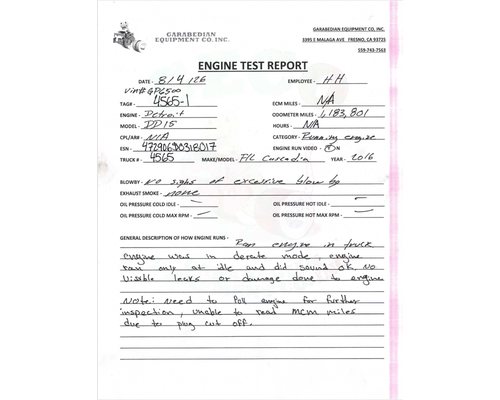 GARABEDIAN
EQUIPMENT CO. INC.
GARABEDIAN EQUIPMENT CO, INC.
3395 E MALAGA AVE FRESNO, CA 93725
559-743-7563
ENGINE TEST REPORT
DATE - 8/4/26 EMPLOYEE - HH
Vin# GDG500
TAG# - 4565-1 ECM MILES - N/A
ENGINE - Detroit ODOMETER MILES - 1,183,801
MODEL - DD15 HOURS - N/A
CPL/AR# - N/A CATEGORY - Running engine
ESN - 472906S0318017 ENGINE RUN VIDEO - Y ON
TRUCK # - 4565 MAKE/MODEL - F/L Cascadia YEAR - 2016
BLOWBY - No signs of excessive blow by
EXHAUST SMOKE - none
OIL PRESSURE COLD IDLE - — OIL PRESSURE HOT IDLE - —
OIL PRESSURE COLD MAX RPM - — OIL PRESSURE HOT MAX RPM - —
GENERAL DESCRIPTION OF HOW ENGINE RUNS - Ran engine in truck
engine was in derate mode, engine
ran only at idle and did sound ok. NO
Visible leaks or damage done to engine
Note: Need to Pull engine for further
inspection, unable to read MCM miles
due to plug cut off.